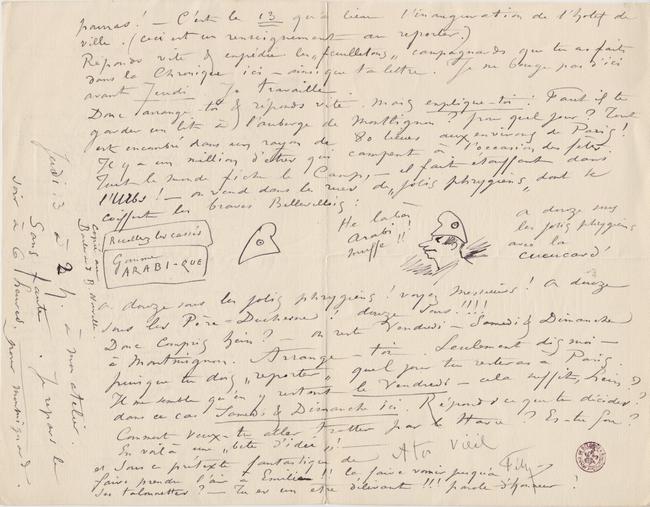 pauvres ! – C'est le 13 qu'a lieu l'inauguration de l'hôtel de
ville. (ceci est un renseignement au reporter.)
Réponds vite & expédie les „feuilletons" campagnards que tu as faits
dans la Chronique ici – ainsi que ta lettre. Je ne bouge pas d'ici
avant Jeudi. Je travaille.
Donc arrange-toi & réponds vite. mais explique-toi : Faut il te
garder un lit à l'auberge de Montlignon ? pour quel jour ? Tout
est encombré dans un rayon de 80 lieues aux environs de Paris !
Il y a un million d'êtres qui campent à l'occasion des fêtes
Tout le monde fiche le Camp, – il fait étouffant dans
l'Urbs ! – on vend dans les rues de „jolis phrygiens" dont se
coiffent les braves Bellevillois :
Recollez les cassés
Gomme
ARABI-QUE
He là bas
Arabi !
truffe !!
à douze sous
les jolis phrygiens
avec la
cucucarde
à douze sous les jolis phrygiens ! voyez messieurs ! à douze
sous les Père-Duchesne ! douze sous !!!!
Donc Compris hein ? – on reste Vendredi – Samedi & Dimanche
à Montmignon. Arrange-toi. Seulement dis moi –
puisque tu dois „reporter" quel jour tu resteras à Paris
Il me semble qu'en y restant le Vendredi – cela suffit, hein ?
dans ce cas Samedi & Dimanche ici. Réponds ce que tu décides ?
Comment veux-tu aller trotter par le Havre ? Es-tu fou ?
En voilà une „bête d'idée" !
et Sous ce prétexte fantastique de
faire prendre l'air à Emilie !! la faire venir jusqu'à
Ses talmouses ? – Tu es un être délirant !!! parole d'honneur !
A toi Vieil
Fély
Jeudi 13 à 2 h à mon atelier.
Sans faute. Je repars le
soir à 6 heures, pour montlignon.